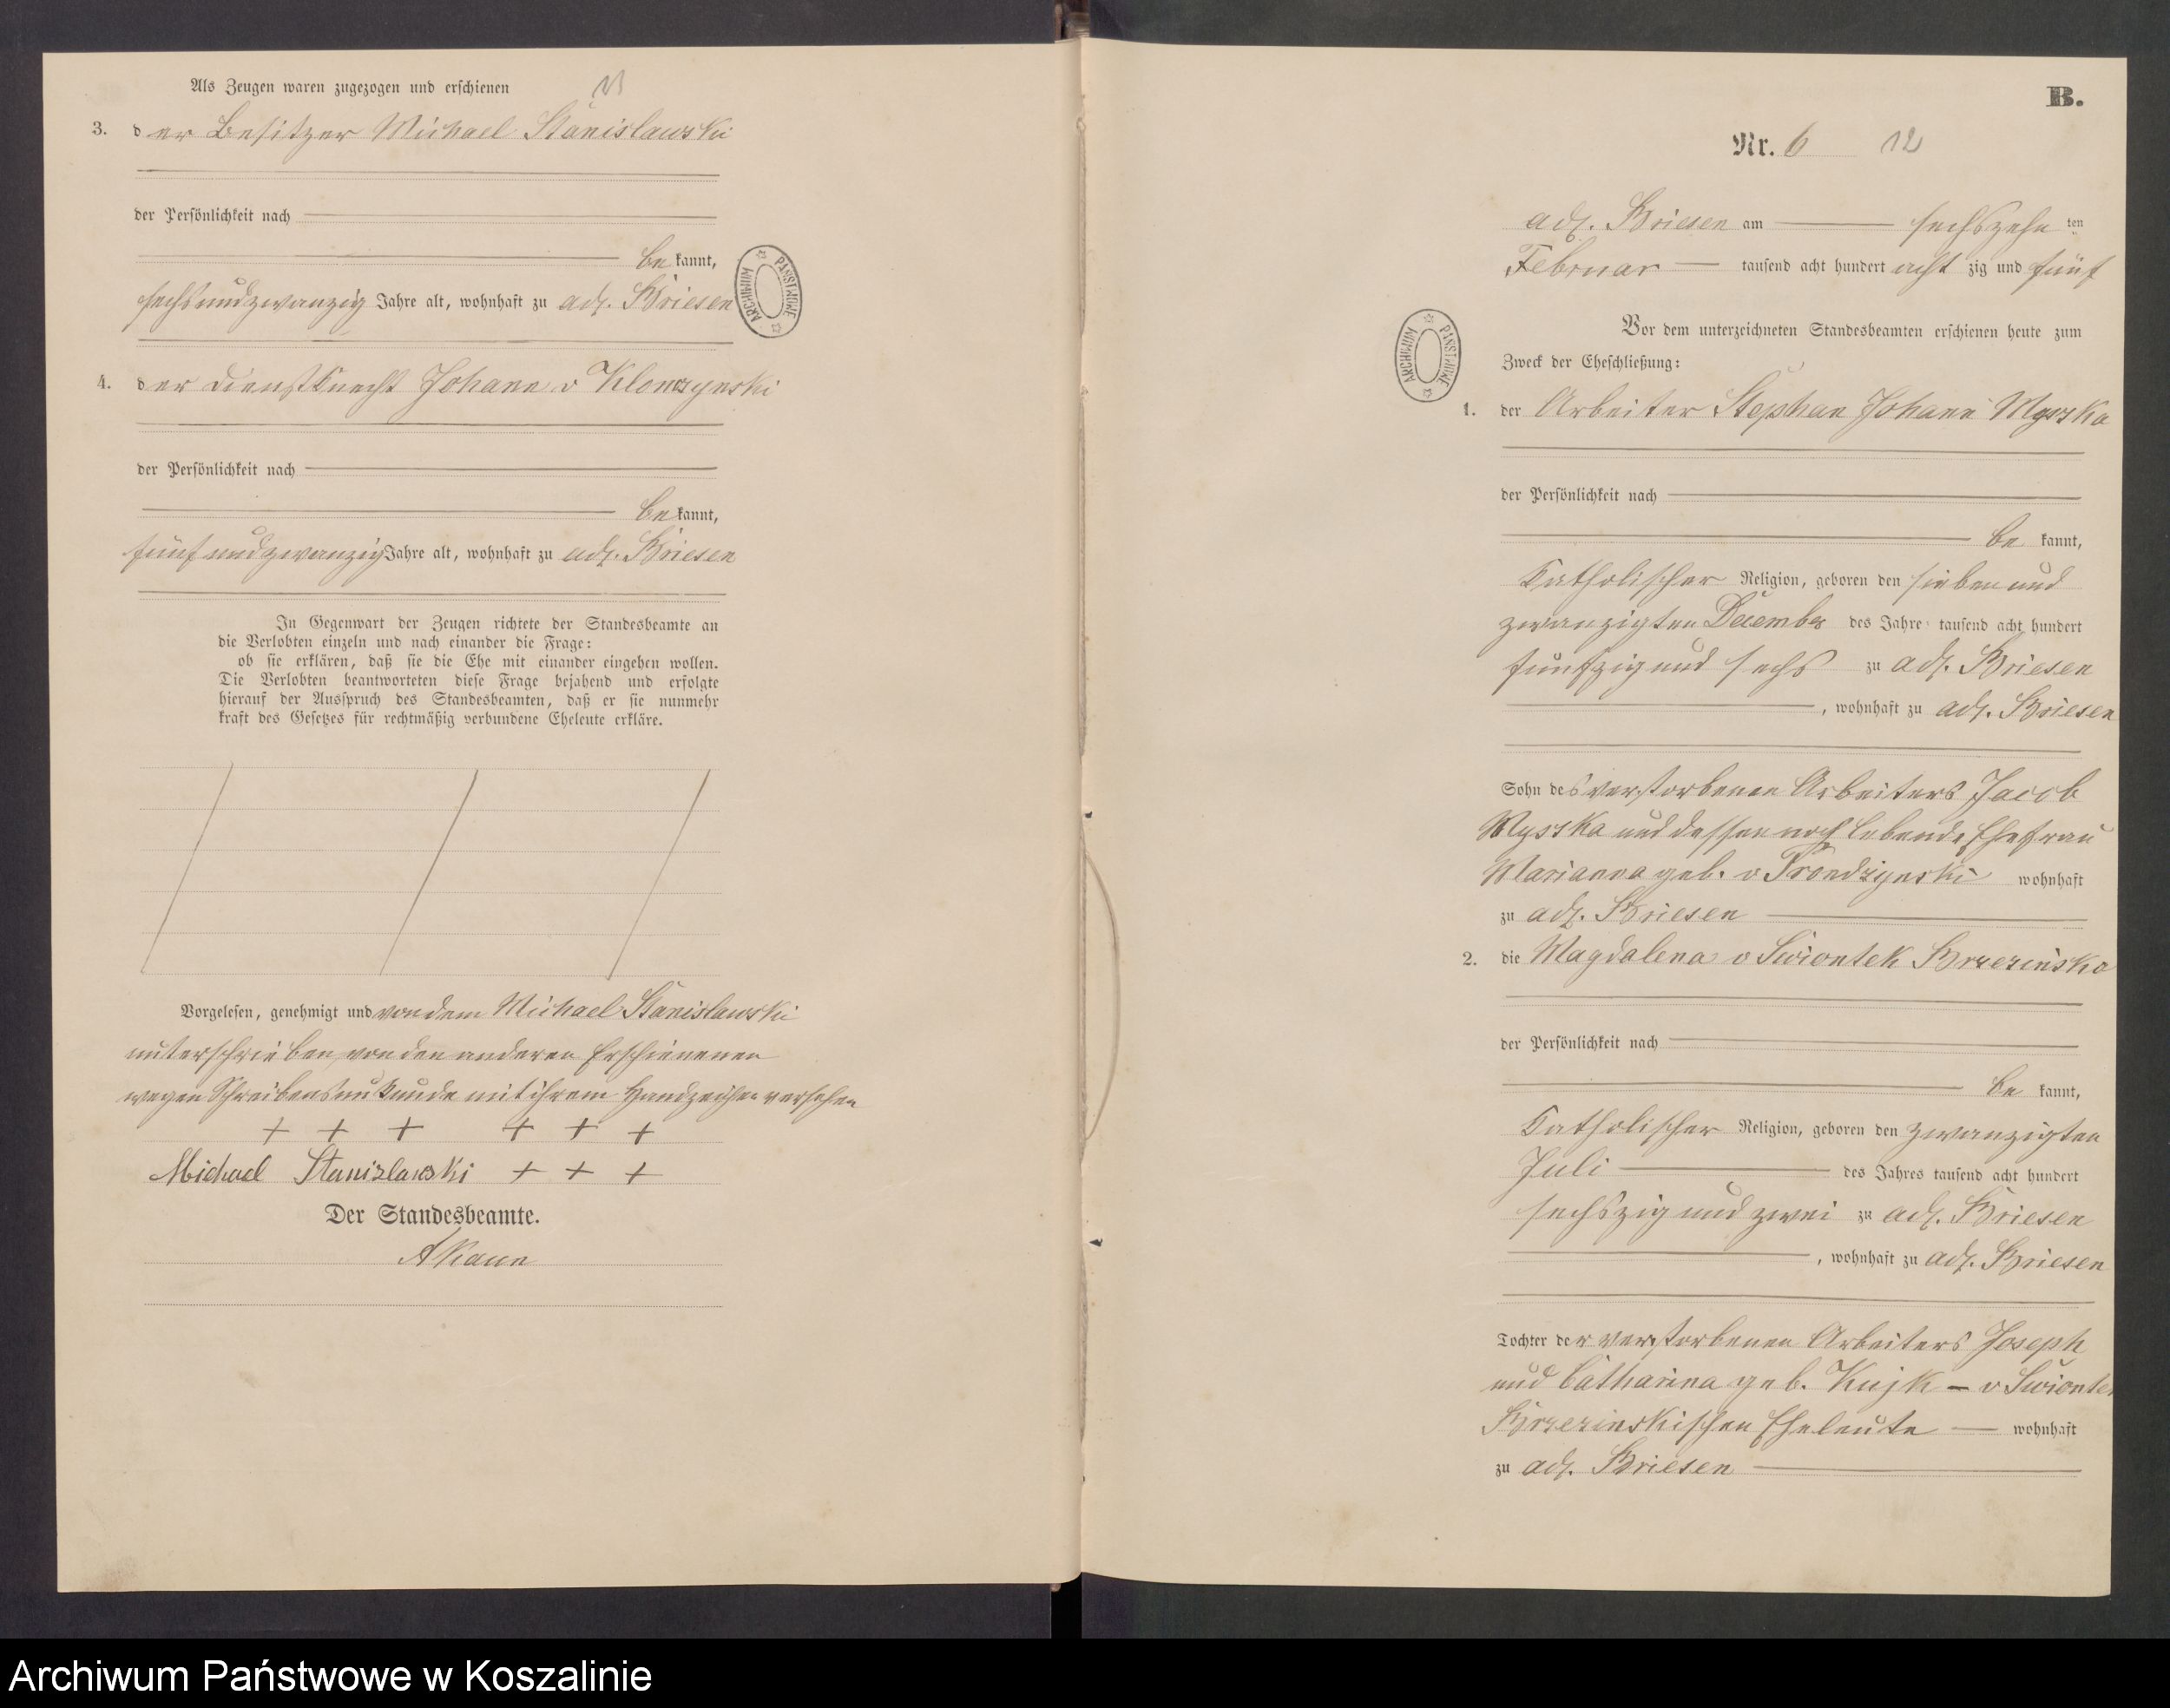 Als Zeugen waren zugezogen und erschienen
3. der Besitzer Michael Stanislawski
der Persönlichkeit nach
bekannt,
sechsundzwanzig Jahre alt, wohnhaft zu adl. Briesen
4. der Dienstknecht Johann v Klonczynski
der Persönlichkeit nach
bekannt,
fünfundzwanzig Jahre alt, wohnhaft zu adl. Briesen
In Gegenwart der Zeugen richtete der Standesbeamte an
die Verlobten einzeln und nach einander die Frage:
ob sie erklären, daß sie die Ehe mit einander eingehen wollen.
Die Verlobten beantworteten diese Frage bejahend und erfolgte
hierauf der Ausspruch des Standesbeamten, daß er sie nunmehr
kraft des Gesetzes für rechtmäßig verbundene Eheleute erkläre.
Vorgelesen, genehmigt und von dem Michael Stanislawski
unterschrieben, von den anderen Erschienenen
wegen Schreibensunkunde mit ihrem Handzeichen versehen
+ + + + + +
Michael Stanislawski + + +
Der Standesbeamte.
ARCHIWUM PAŃSTWOWE
B.
Nr. 6 12
adl. Briesen am sechszehnten
Februar tausend acht hundert achtzig und fünf
Vor dem unterzeichneten Standesbeamten erschienen heute zum
Zweck der Eheschließung:
1. der Arbeiter Stephan Johann Myszka
der Persönlichkeit nach
bekannt,
Katholischer Religion, geboren den sieben und
zwanzigten December des Jahres tausend acht hundert
fünfzig und sechs zu adl. Briesen
, wohnhaft zu adl. Briesen
Sohn des verstorbenen Arbeiters Jacob
Myszka und dessen noch lebende Ehefrau
Marianna geb. v Trondzynski wohnhaft
zu adl. Briesen
2. die Magdalena v Swiontek Brzezinska
der Persönlichkeit nach
bekannt,
Katholischer Religion, geboren den zwanzigten
Juli des Jahres tausend acht hundert
sechszig und zwei zu adl. Briesen
, wohnhaft zu adl. Briesen
Tochter der verstorbenen Arbeiters Joseph
und Catharina geb. Kujk - v Swiontek
Brzezinskischen Eheleute wohnhaft
zu adl. Briesen
ARCHIWUM PAŃSTWOWE
Archiwum Państwowe w Koszalinie